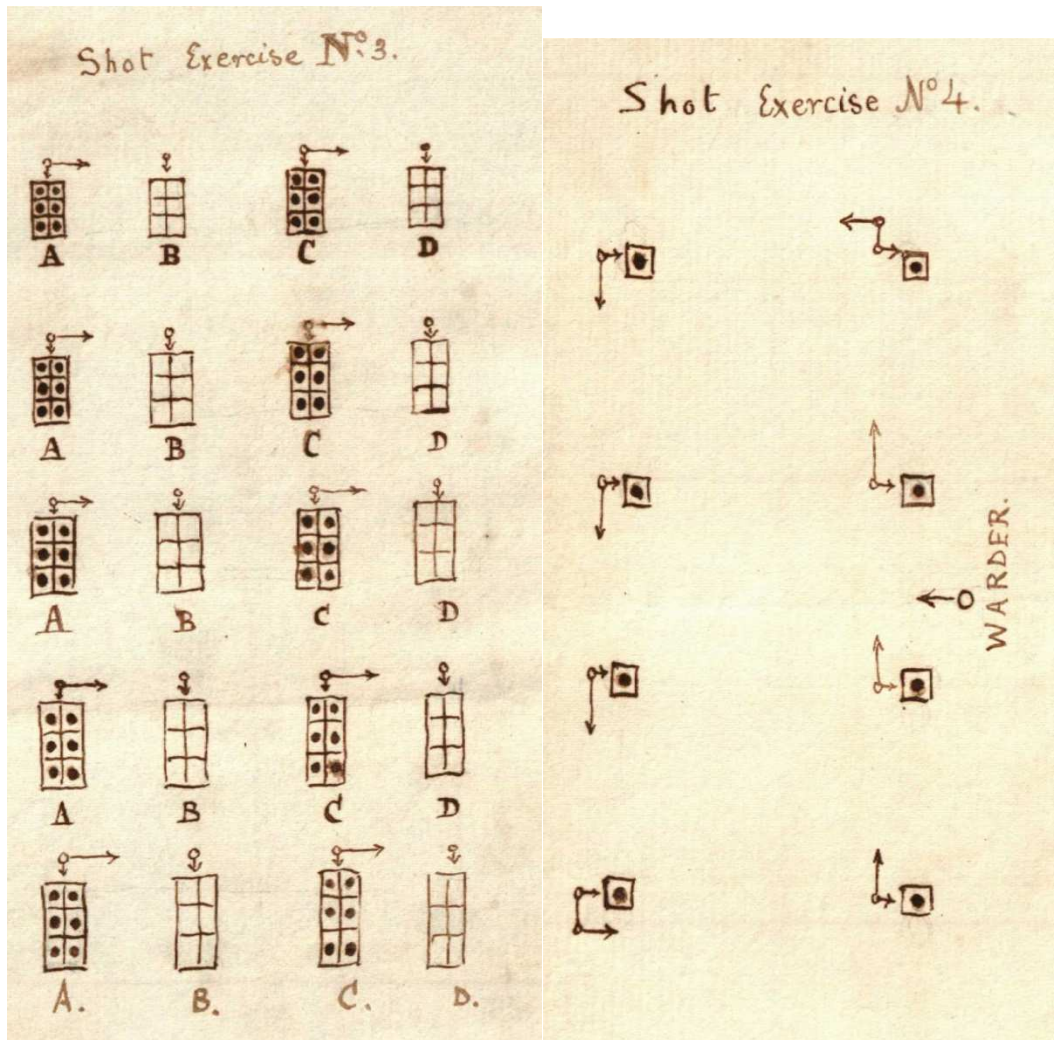 Shot Exercise Nº.3.
A B C D
A B C D
A B C D
A B C D
A. B. C. D.
Shot Exercise Nº4.
WARDER.